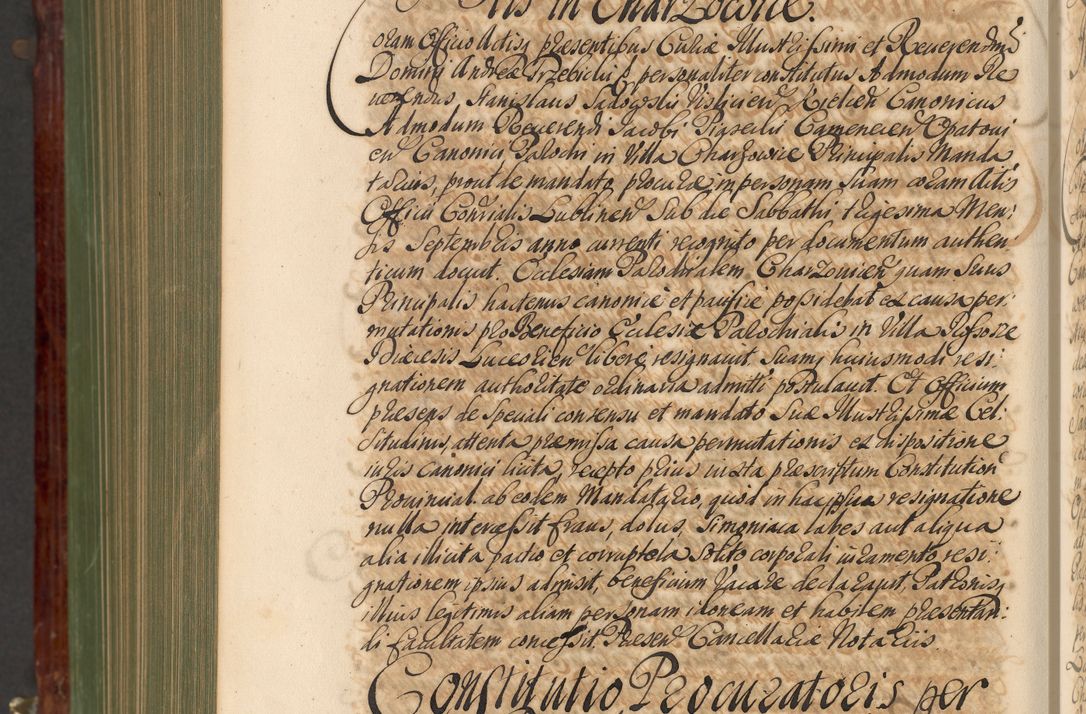 in Charzowice.
oram Officio Actisq præsentibus Curiæ Illustrissimi et Reverendmi
Domini Andreæ Trzebicki &c personaliter constitutus Admodum Re
verendus Stanislaus Sadogoslii Vislicien Kielcien Canonicus
Admodum Reverendi Jacobi Piasecki Camenecien Opatovi
en Canonici Parochi in Villa Charzowice Principalis Manda
tarius, prout de mandato procuræ in personam suam coram Actis
Officii Consrialis Lublinen Sub die Sabbathi trigesima Men:
sis Septembris anno currenti recognito per documentum authen
ticum docuit, Ecclesiam Parochialem Charzovicen quam Suus
Principalis hactenus canonice et pacifice possidebat ex causa per:
mutationis pro Beneficio Ecclesiæ Parochialis in Villa
Diæcesis Luceorien libere resignavit. Suamq huiusmodi resi:
gnationem authoritate ordinaria admitti postulavit. Et Officium
præsens de speciali consensu et mandato Suæ Illustrissimæ Cel:
situdinis, attenta præmissa causa permutationis ex dispositione
iuris canonici licita, recepto prius iuxta præscriptum Constitution
Provincial. ab eodem Mandatario, quod in hac resignatione
nulla intercessit fraus, dolus, Simoniaca labes aut aliqua
alia illicita pactio et corruptela solito corporali iuramento resi:
gnationem ipsius admisit, beneficium vacare declaravit, Patronisq
illius legitimis aliam personam idoneam et habilem præsentan:
di facultatem concessit. Præsen Cancellariæ Notariis.
Constitutio Procuratoris per